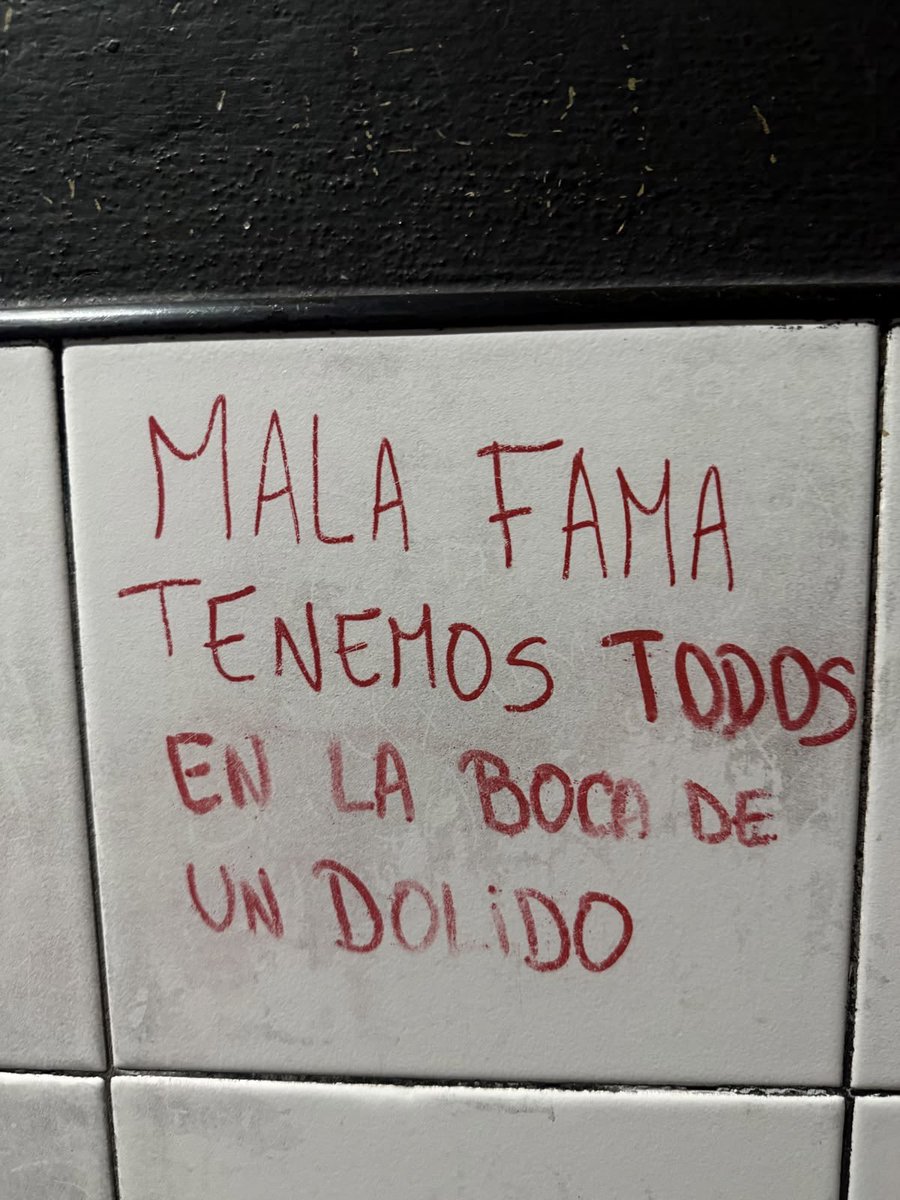 MALA FAMA
TENEMOS TODOS
EN LA BOCA DE
UN DOLiDO